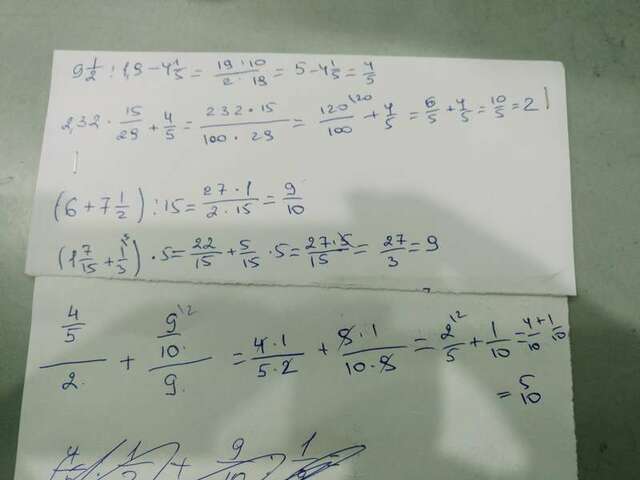 9 1/2 : 1,9 - 4 1/5 = 19·10/2·19 = 5 - 4 1/5 = 4/5
2,32 · 15/29 + 4/5 = 232·15/100·29 = 120/100 \20 + 4/5 = 6/5 + 4/5 = 10/5 = 2
(6 + 7 1/2) : 15 = 27·1/2·15 = 9/10
(1 7/15 + 1/3 \5) · 5 = 22/15 + 5/15 · 5 = 27·5/15 = 27/3 = 9
4/5 / 2 + 9/10 \2 / 9 = 4·1/5·2 + 9·1/10·9 = 2/5 \2 + 1/10 = 4/10 + 1/10
= 5/10